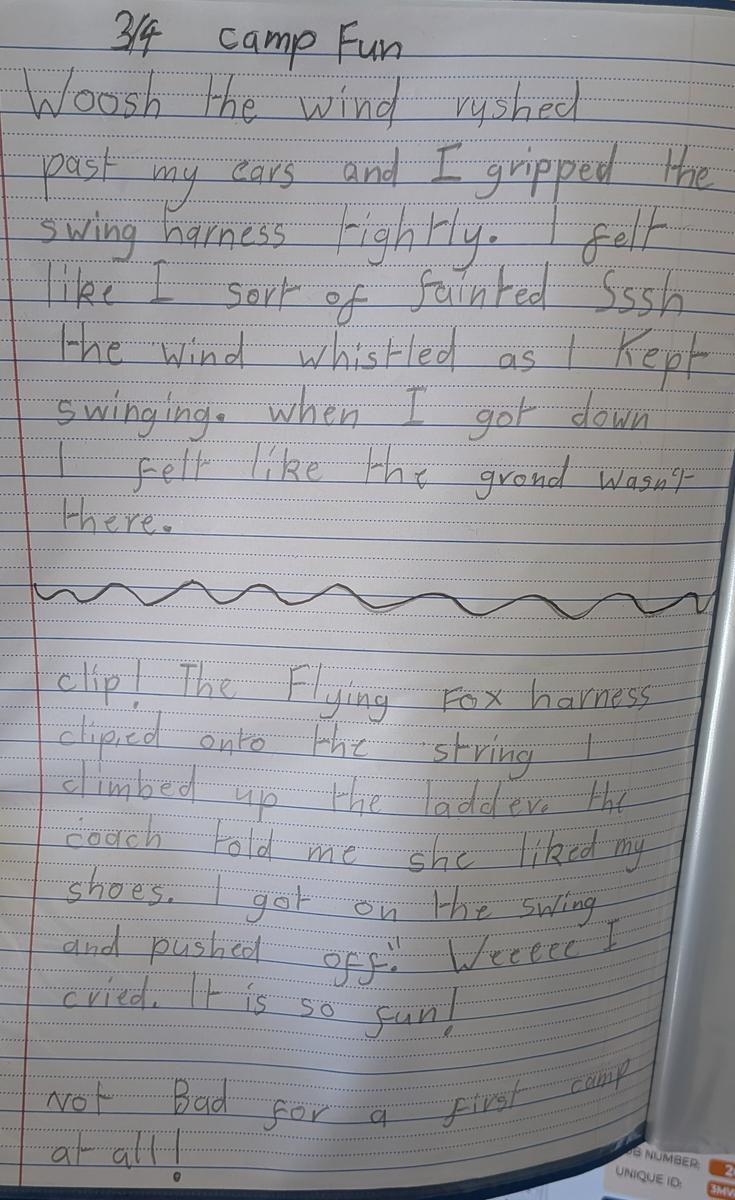 3/4 camp Fun
Woosh the wind rushed
past my ears and I gripped the
swing harness tightly. I felt
like I sort of fainted Sssh
the wind whistled as I kept
swinging. when I got down
I felt like the grond wasn't
there.
clip! The Flying Fox harness
clipied onto the string I
climbed up the ladder. the
coach told me she liked my
shoes. I got on the swing
and pushed off." Weeeee I
cried. It is so fun!
Not Bad for a first camp
at all!
NUMBER:
UNIQUE ID:
3MV